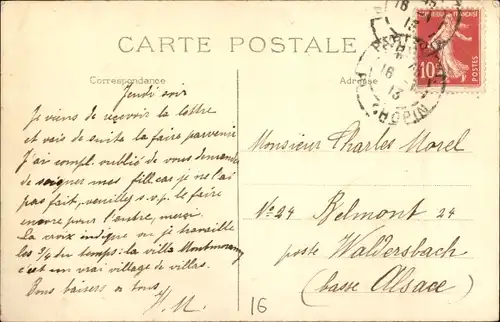 CARTE POSTALE
Correspondance
Adresse
RÉPUBLIQUE FRANÇAISE
10
POSTES
16
13
Jeudi soir
Je viens de recevoir la lettre
et vais de suite la faire parvenir
J'ai compl. oublié de vous demander
de soigner mes fill car je ne l'ai
pas fait, veuillez s.v.p. le faire
encore pour l'autre, merci.
La croix indique où je travaille
les 3/4 du temps: la villa Montmorency
c'est un vrai village de villas.
Bons baisers à tous,
H.M.
Monsieur Charles Morel
No 24 Belmont 24
poste Waldersbach
(basse Alsace)
16